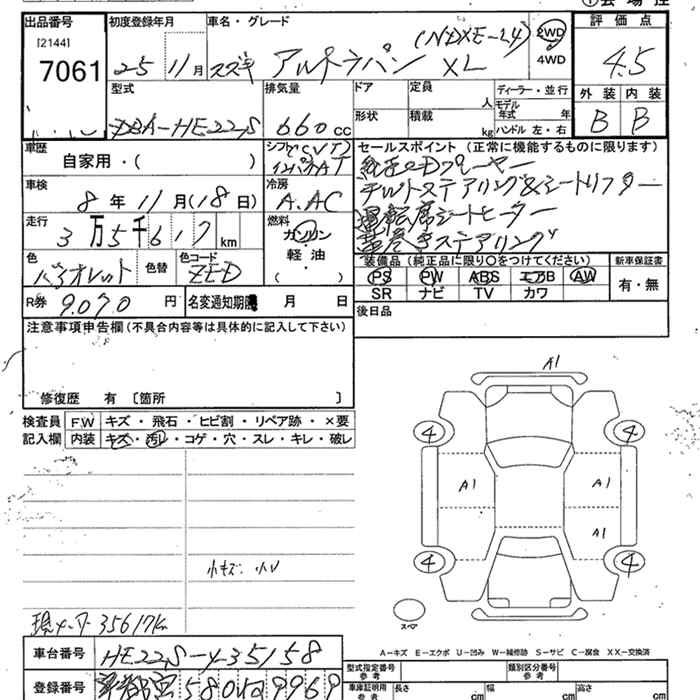 出品番号 初度登録年月 車名・グレード 評価点
[2144]
7061 25 11月 スズキ アルトラパン XL 2WD 4WD 4.5
型式 排気量 ドア 定員 人 ディーラー・並行 外装 内装
モデル年式 年
DBA-HE22S 660cc 形状 積載 kg ハンドル 左・右 B B
車歴 自家用・( ) シフト セールスポイント (正常に機能するものに限ります)
純正CDプレーヤー
車検 8年11月(18日) 冷房 A.AC チルトステアリング&シートリフター
運転席シートヒーター
走行 3万5千617km 燃料 ガソリン・軽油・( ) 革巻きステアリング
色 バイオレット 色替 色コード ZED
装備品 (純正品に限り○をつけてください) 新車保証書
PS PW ABS エアB AW 有・無
SR ナビ TV カワ
R券 9.070円 名変通知期限 月 日 後日品
注意事項申告欄(不具合内容等は具体的に記入して下さい)
修復歴 有 〔箇所 〕
検査員 FW キズ・飛石・ヒビ割・リペア跡・×要
記入欄 内装 キズ・汚レ・コゲ・穴・スレ・キレ・破レ
A1
4 4
A1 A1
A1
4 4
小キズ 小U
現メーター 35617km
スペア
A-キズ E-エクボ U-凹み W-補修跡 S-サビ C-腐食 XX-交換済
車台番号 HE22S-435158
型式指定番号 参考 類別区分番号 参考
登録番号 580 9969
車庫証明用 参考 長さ cm 幅 cm 高さ cm